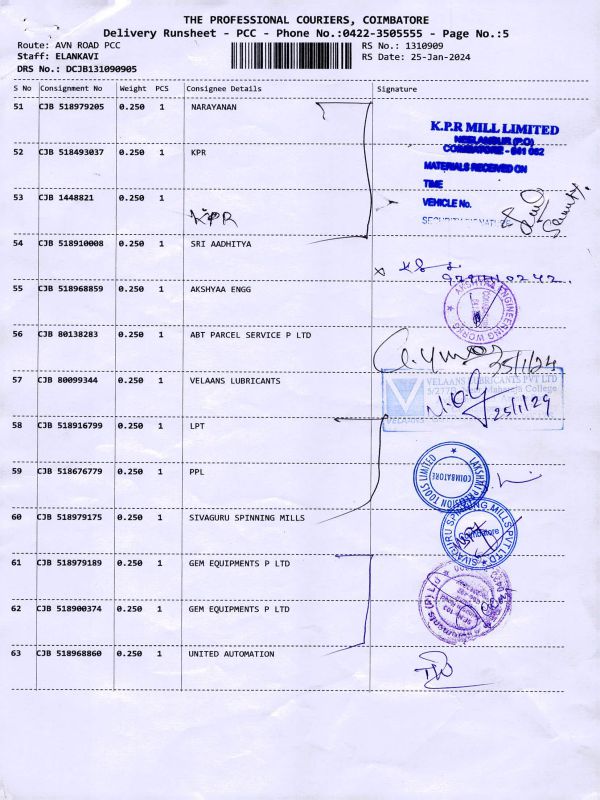 THE PROFESSIONAL COURIERS, COIMBATORE
Delivery Runsheet - PCC - Phone No.:0422-3505555 - Page No.:5
Route: AVN ROAD PCC RS No.: 1310909
Staff: ELANKAVI RS Date: 25-Jan-2024
DRS No.: DCJB131090905
S No Consignment No Weight PCS Consignee Details Signature
51 CJB 518979205 0.250 1 NARAYANAN
K.P.R MILL LIMITED
NEELAMBUR (P.O)
COIMBATORE - 641 062
52 CJB 518493037 0.250 1 KPR
MATERIALS RECEIVED ON
TIME
53 CJB 1448821 0.250 1
VEHICLE No.
KPR
SECURITY SIGNATURE
54 CJB 518910008 0.250 1 SRI AADHITYA
55 CJB 518968859 0.250 1 AKSHYAA ENGG
AKSHYAA ENGINEERING WORKS
56 CJB 80138283 0.250 1 ABT PARCEL SERVICE P LTD
25/1/24
57 CJB 80099344 0.250 1 VELAANS LUBRICANTS
VELAANS LUBRICANTS PVT LTD
College
VELAANS
25/1/24
58 CJB 518916799 0.250 1 LPT
59 CJB 518676779 0.250 1 PPL
LAKSHMI PRECISION TOOLS LIMITED
COIMBATORE
60 CJB 518979175 0.250 1 SIVAGURU SPINNING MILLS
SIVAGURU SPINNING MILLS PVT LTD
Coimbatore
61 CJB 518979189 0.250 1 GEM EQUIPMENTS P LTD
62 CJB 518900374 0.250 1 GEM EQUIPMENTS P LTD
63 CJB 518968860 0.250 1 UNITED AUTOMATION